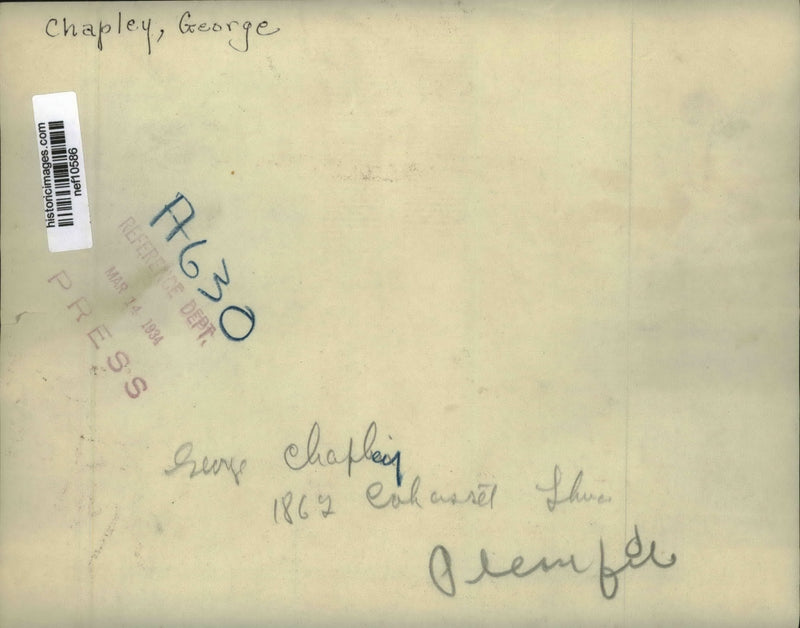 Chapley, George
historicimages.com
nef10586
A630
REFERENCE DEPT.
MAR 14 1934
PRESS
George Chapley
1862 Cohasset